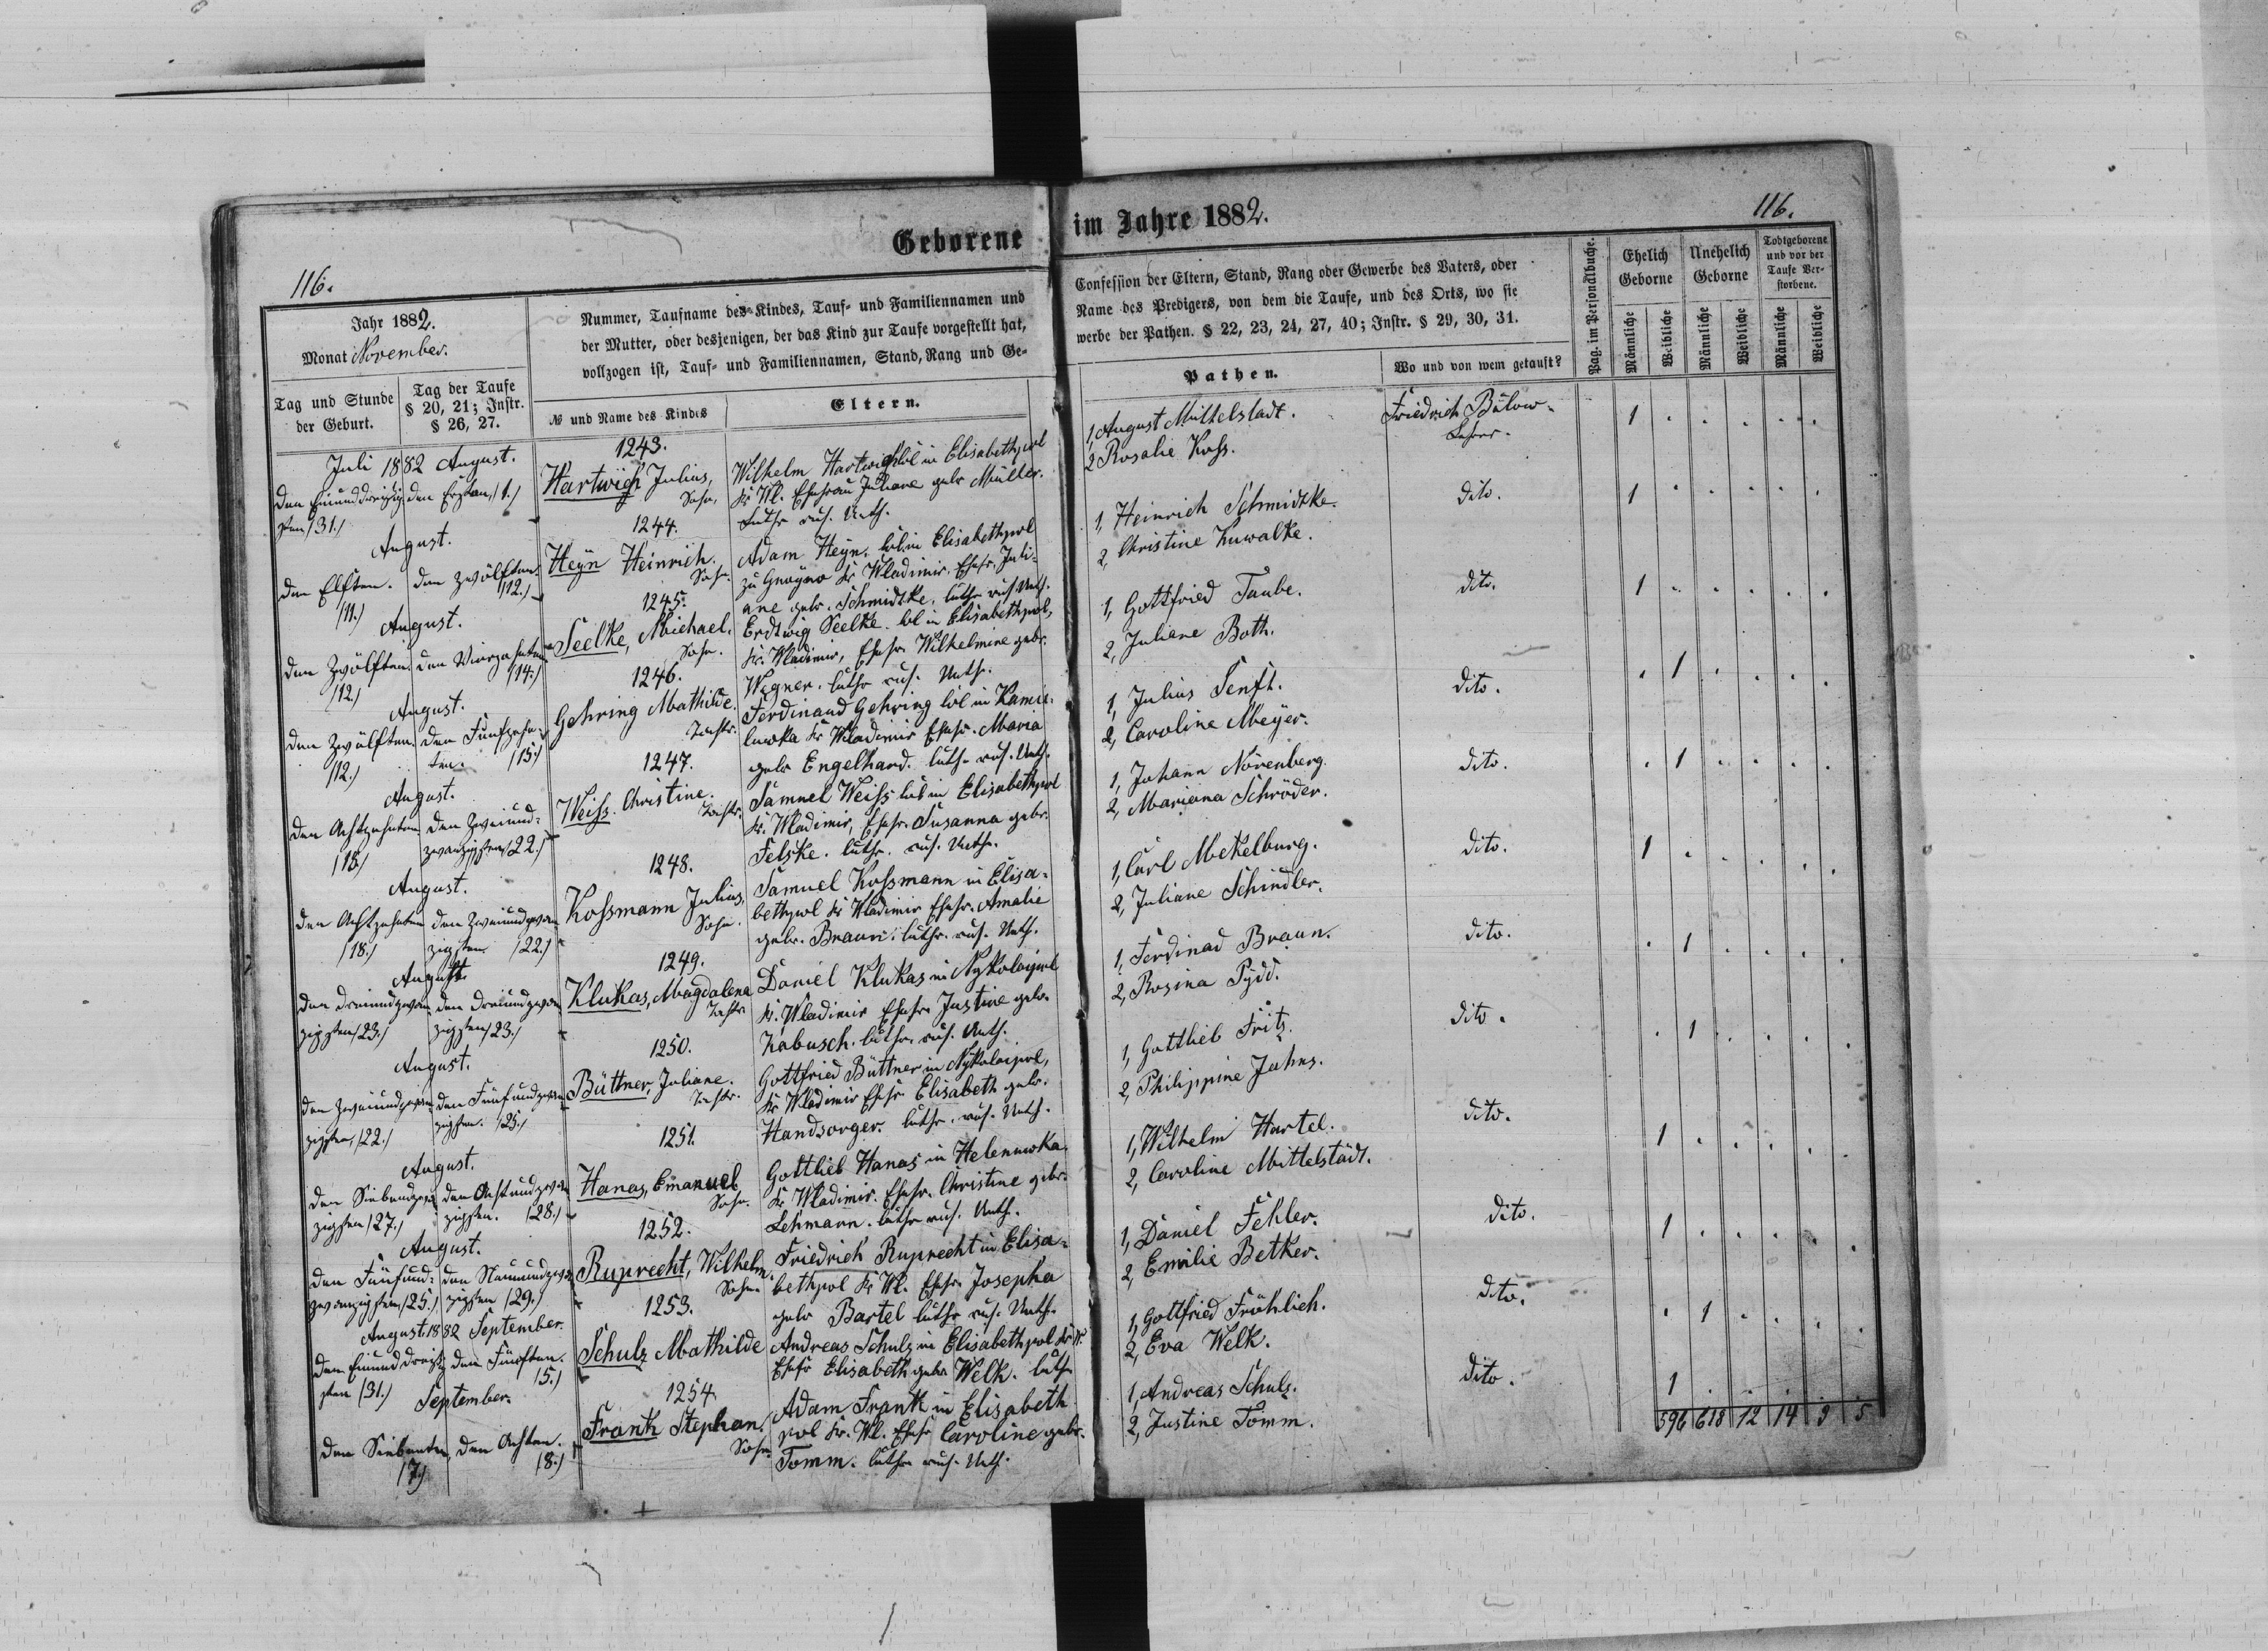 116.
Geborene
Jahr 1882.
Monat November.
Tag und Stunde
der Geburt.
Tag der Taufe
§ 20, 21; Instr.
§ 26, 27.
Nummer, Taufname des Kindes, Tauf- und Familiennamen und
der Mutter, oder desjenigen, der das Kind zur Taufe vorgestellt hat,
vollzogen ist, Tauf- und Familiennamen, Stand, Rang und Ge-
№ und Name des Kindes
Eltern.
Juli 1882 August.
den Einunddreißig
sten /31./
den Ersten /1./
1243.
Hartwich Julius,
Sohn.
Wilhelm Hartwich in Elisabethpol
Kr Wl. Ehefrau Juliane geb. Müller.
luthr rus. Unth.
August.
den Elften.
/11./
den Zwölften
/12./
1244.
Heyn Heinrich.
Sohn.
Adam Heyn in Elisabethpol
zu Gnoyno Kr Wladimir. Ehefr. Juli-
ane geb. Schmidtke. luthr rus Unth.
August.
den Zwölften
/12./
den Vierzehnten
/14./
1245.
Seelke, Michael.
Sohn.
Erdtwig Seelke in Elisabethpol,
Kr. Wladimir, Ehefr. Wilhelmine geb.
Wegner. luthr rus. Unth.
August.
den Zwölften
/12./
den Fünfzehn-
ten. /15./
1246.
Gehring Mathilde.
Tochtr.
Ferdinand Gehring in Kamie-
luwka Kr Wladimir Ehefr. Maria
geb Engelhard. luth. rus. Unth.
August.
den Achtzehnten
/18./
den Zweiund-
zwanzigsten /22./
1247.
Weiss. Christine.
Tochtr.
Samuel Weiss in Elisabethpol
Kr. Wladimir, Ehefr. Susanna geb.
Felske. luthr. rus. Unth.
August.
den Achtzehnten
/18./
den Zweiundzwan
zigsten /22./
1248.
Kossmann Julius,
Sohn.
Samuel Kossmann in Elisa-
bethpol Kr Wladimir Ehefr. Amalie
geb. Braun. luthr. rus. Unth.
August.
den Dreiundzwan
zigsten /23./
den Dreiundzwan
zigsten /23./
1249.
Klukas, Magdalena
Tochtr
Daniel Klukas in Nykolaipol
Kr. Wladimir Ehefr. Justine geb.
Kabusch. luthr. rus. Unth.
August.
den Zweiundzwan
zigsten /22./
den Fünfundzwan
zigsten. /25./
1250.
Büttner, Juliane.
Tochtr.
Gottfried Büttner in Nykolaipol,
Kr Wladimir Ehefr Elisabeth geb.
Handsorger. luthr. rus. Unth.
August.
den Siebundzwan
zigsten /27./
den Achtundzwan
zigsten. /28./
1251.
Hanas, Emanuel
Sohn.
Gottlieb Hanas in Helenuwka
Kr. Wladimir. Ehefr. Christine geb.
Lehmann. luthr rus. Unth.
August.
den Fünfund-
zwanzigsten /25./
den Neunundzwan
zigsten /29./
1252.
Ruprecht, Wilhelm.
Sohn.
Friedrich Ruprecht in Elisa-
bethpol Kr Wl. Ehefr. Josepha
geb Bartel luthr rus. Unth.
August 1882 September.
den Einunddreißig
sten /31./
den Fünften.
/5./
1253.
Schulz Mathilde
Andreas Schulz in Elisabethpol Kr W.
Ehefr Elisabeth geb. Welk. luth.
September.
den Siebenten
/7./
den Achten.
/8./
1254.
Frank Stephan.
Sohn.
Adam Frank in Elisabeth
pol Kr. Wl. Ehefr Caroline geb.
Tomm. luthr rus. Unth.
116.
im Jahre 1882.
Confession der Eltern, Stand, Rang oder Gewerbe des Vaters, oder
Name des Predigers, von dem die Taufe, und des Orts, wo sie
werbe der Pathen. § 22, 23, 24, 27, 40; Instr. § 29, 30, 31.
Pathen.
Wo und von wem getauft?
Pag. im Personalbuche.
Ehelich
Geborne
Unehelich
Geborne
Todtgeborene
und vor der
Taufe Ver-
storbene.
Männliche
Weibliche
Männliche
Weibliche
Männliche
Weibliche
1, August Mittelstadt.
2 Rosalie Koss.
Friedrich Bülow.
Lehrer.
1 . . . . .
1, Heinrich Schmidtke.
2, Christine Kuwalke.
dito.
1 . . . . .
1, Gottfried Taube.
2, Juliane Both.
dito.
1 . . . . .
1, Julius Senft.
2, Caroline Meyer.
dito.
. 1 . . . .
1, Johann Nörenberg.
2, Mariana Schröder.
dito.
. 1 . . . .
1, Carl Mekelburg.
2, Juliane Schindler.
dito.
1 . . . . .
1, Ferdinad Braun.
2, Rosina Pydd.
dito.
. 1 . . . .
1, Gottlieb Fritz.
2, Philippine Jahns.
dito.
. 1 . . . .
1, Wilhelm Hartel.
2, Caroline Mittelstädt.
dito.
1 . . . . .
1, Daniel Fehler.
2, Emilie Betker.
dito.
1 . . . . .
1, Gottfried Fröhlich.
2, Eva Welk.
dito.
. 1 . . . .
1, Andreas Schulz.
2, Justine Tomm.
dito.
1 . . . . .
596 618 12 14 9 5